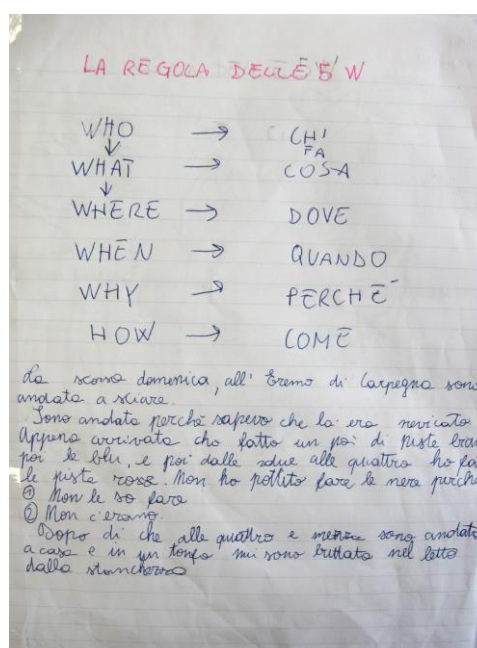 LA REGOLA DELLE 5 W
WHO → CHI
↓ FA
WHAT → COSA
↓
WHERE → DOVE
WHEN → QUANDO
WHY → PERCHÉ
HOW → COME
La scorsa domenica, all' Eremo di Carpegna sono
andata a sciare.
Sono andata perché sapevo che la era nevicato
Appena arrivata cho fatto un poi di piste
poi le blu, e poi dalle due alle quattro ho
le piste rosse. Non ho potuto fare le nere perché
① Non le so fare
② Non c'erano.
Dopo di che alle quattro e mezza sono andata
a casa e in un tonfo mi sono buttata nel letto
dalla stanchezza